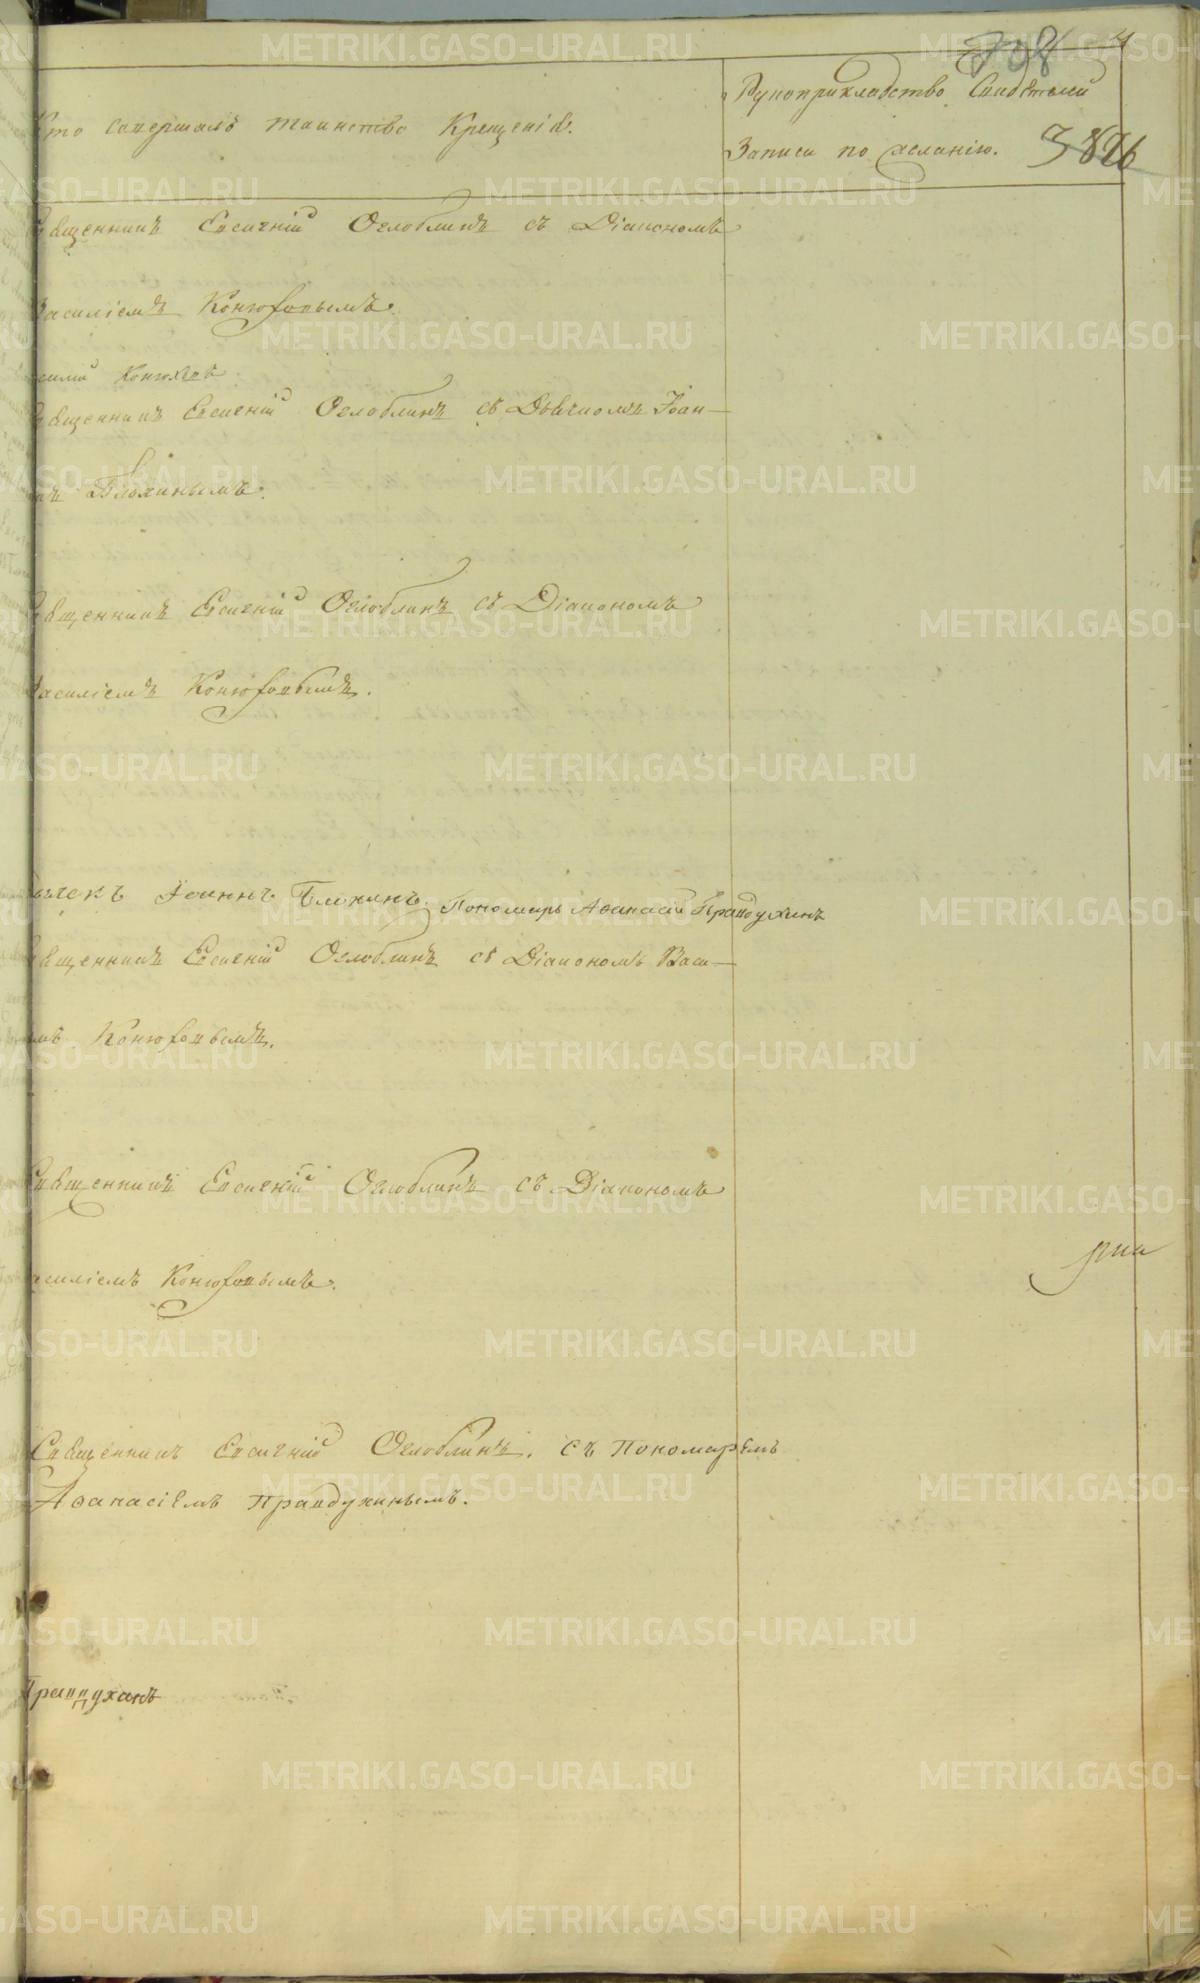 708 4
Рукоприкладство Свидѣтелей
Кто совершалъ таинство Крещенія.
Записи по желанію.
Священникъ Евсигній Оглоблинъ съ Діакономъ
Василіемъ Конюховымъ.
Конюховъ
Священникъ Евсигній Оглоблинъ съ Дьячкомъ Іоан-
мъ Блохинымъ.
Священникъ Евсигній Оглоблинъ съ Діакономъ
Василіемъ Конюховымъ.
Дьячекъ Іоаннъ Блохинъ. Пономарь Аѳанасій Правдухинъ
Священникъ Евсигній Оглоблинъ съ Діакономъ Васи-
мъ Конюховымъ.
Священникъ Евсигній Оглоблинъ съ Діакономъ
Василіемъ Конюховымъ.
Священникъ Евсигній Оглоблинъ. съ Пономарѣмъ
Аѳанасіѣмъ Правдухинымъ.
Правдухинъ
METRIKI.GASO-URAL.RU